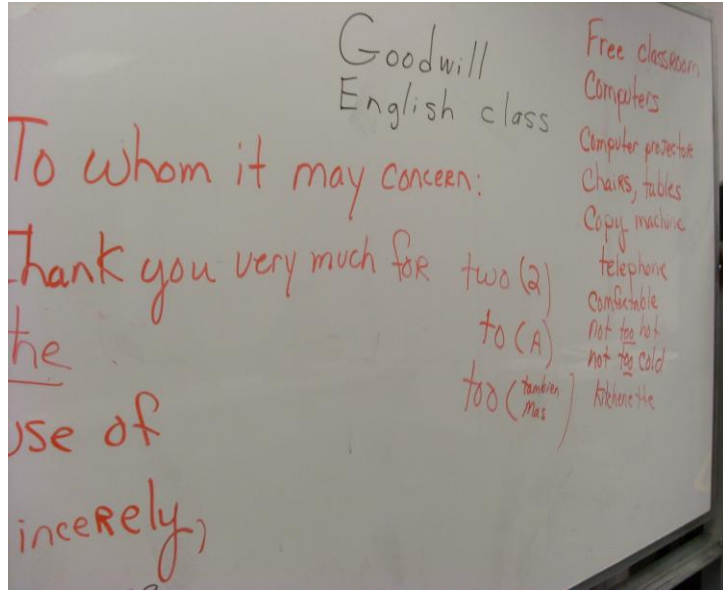 Goodwill
English class
To whom it may concern:
Thank you very much for
the
use of
Sincerely,
two (2)
to (A)
too (tambien
mas)
Free classroom
Computers
Computer projector
Chairs, tables
Copy machine
telephone
Comfortable
not too hot
not too cold
kitchenette